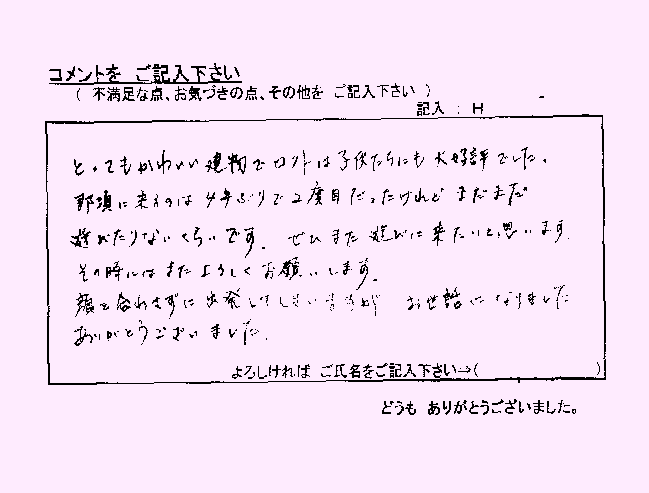 コメントを ご記入下さい
( 不満足な点、お気づきの点、その他を ご記入下さい )
記入 : H
とってもかわいい建物でロフトは子供たちにも大好評でした。
那須に来るのは4年ぶりで2度目だったけれど まだまだ
遊びたりないくらいです。ぜひまた遊びに来たいと思います。
その時にはまたよろしくお願いします。
顔を合わせずに出発してしまいますが お世話になりました
ありがとうございました。
よろしければ ご氏名をご記入下さい⇒( )
どうも ありがとうございました。